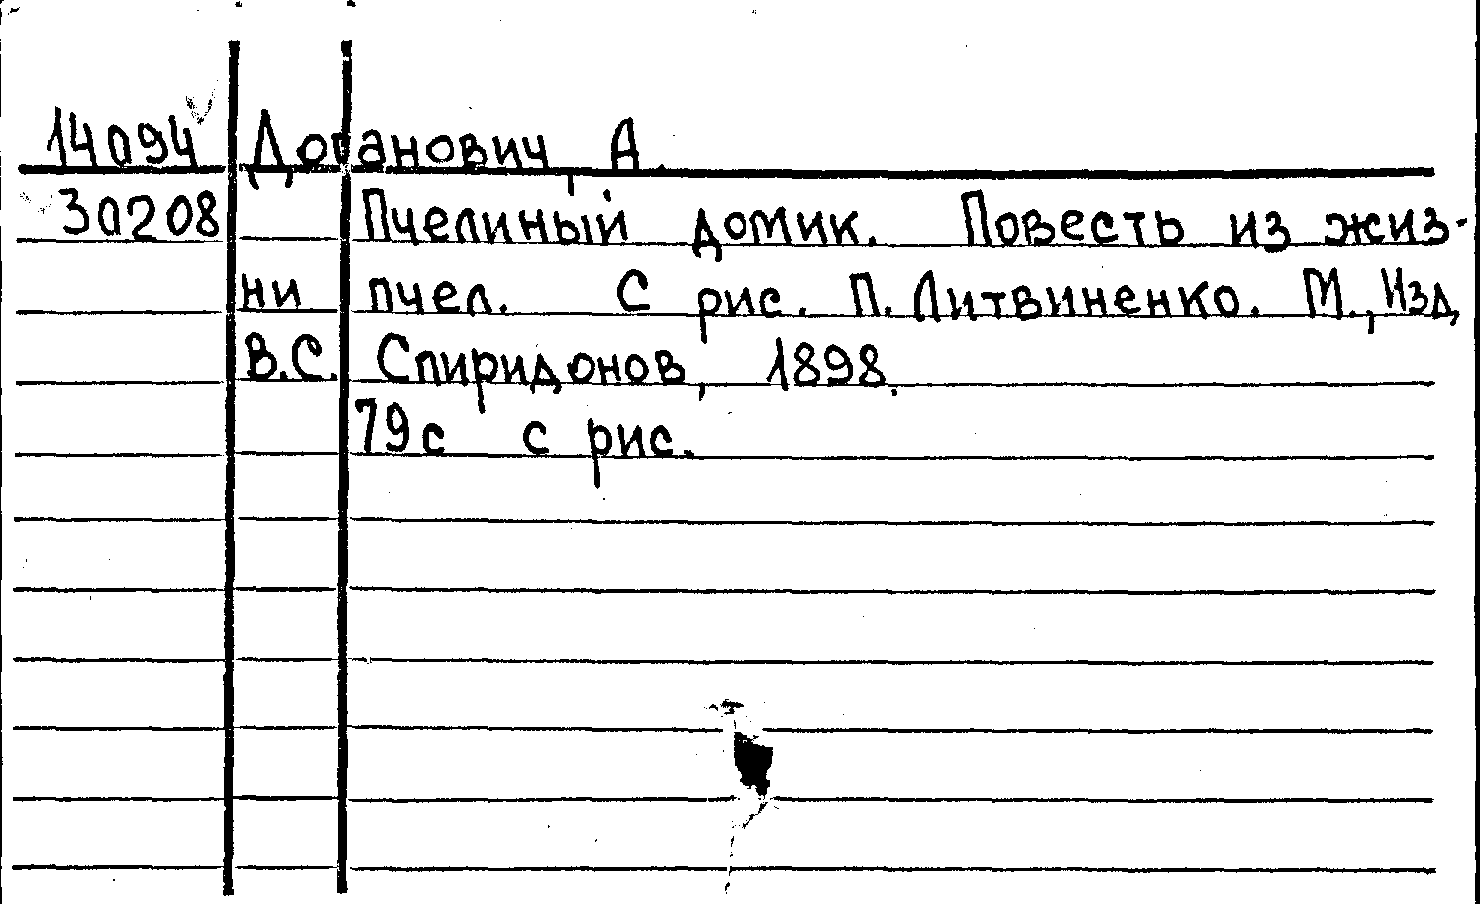 14а94 Доганович, А.
3а208 Пчелиный домик. Повесть из жиз-
ни пчел. С рис. П. Литвиненко. М., Изд.
В.С. Спиридонов, 1898.
79с с рис.